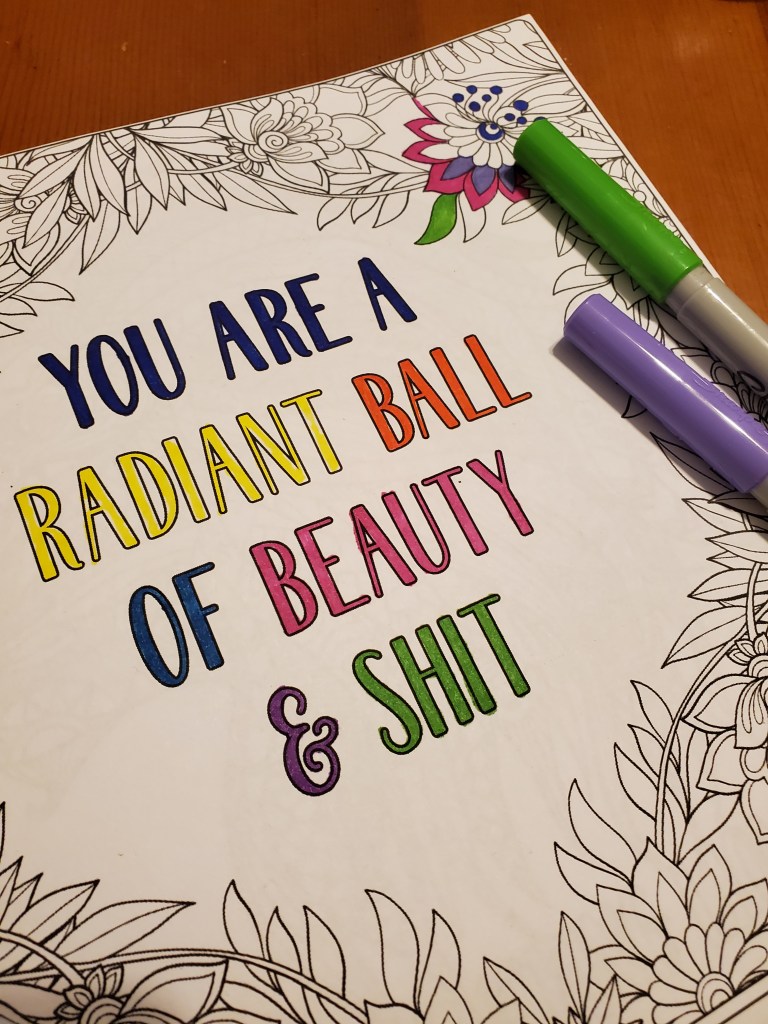 YOU ARE A
RADIANT BALL
OF BEAUTY
& SHIT